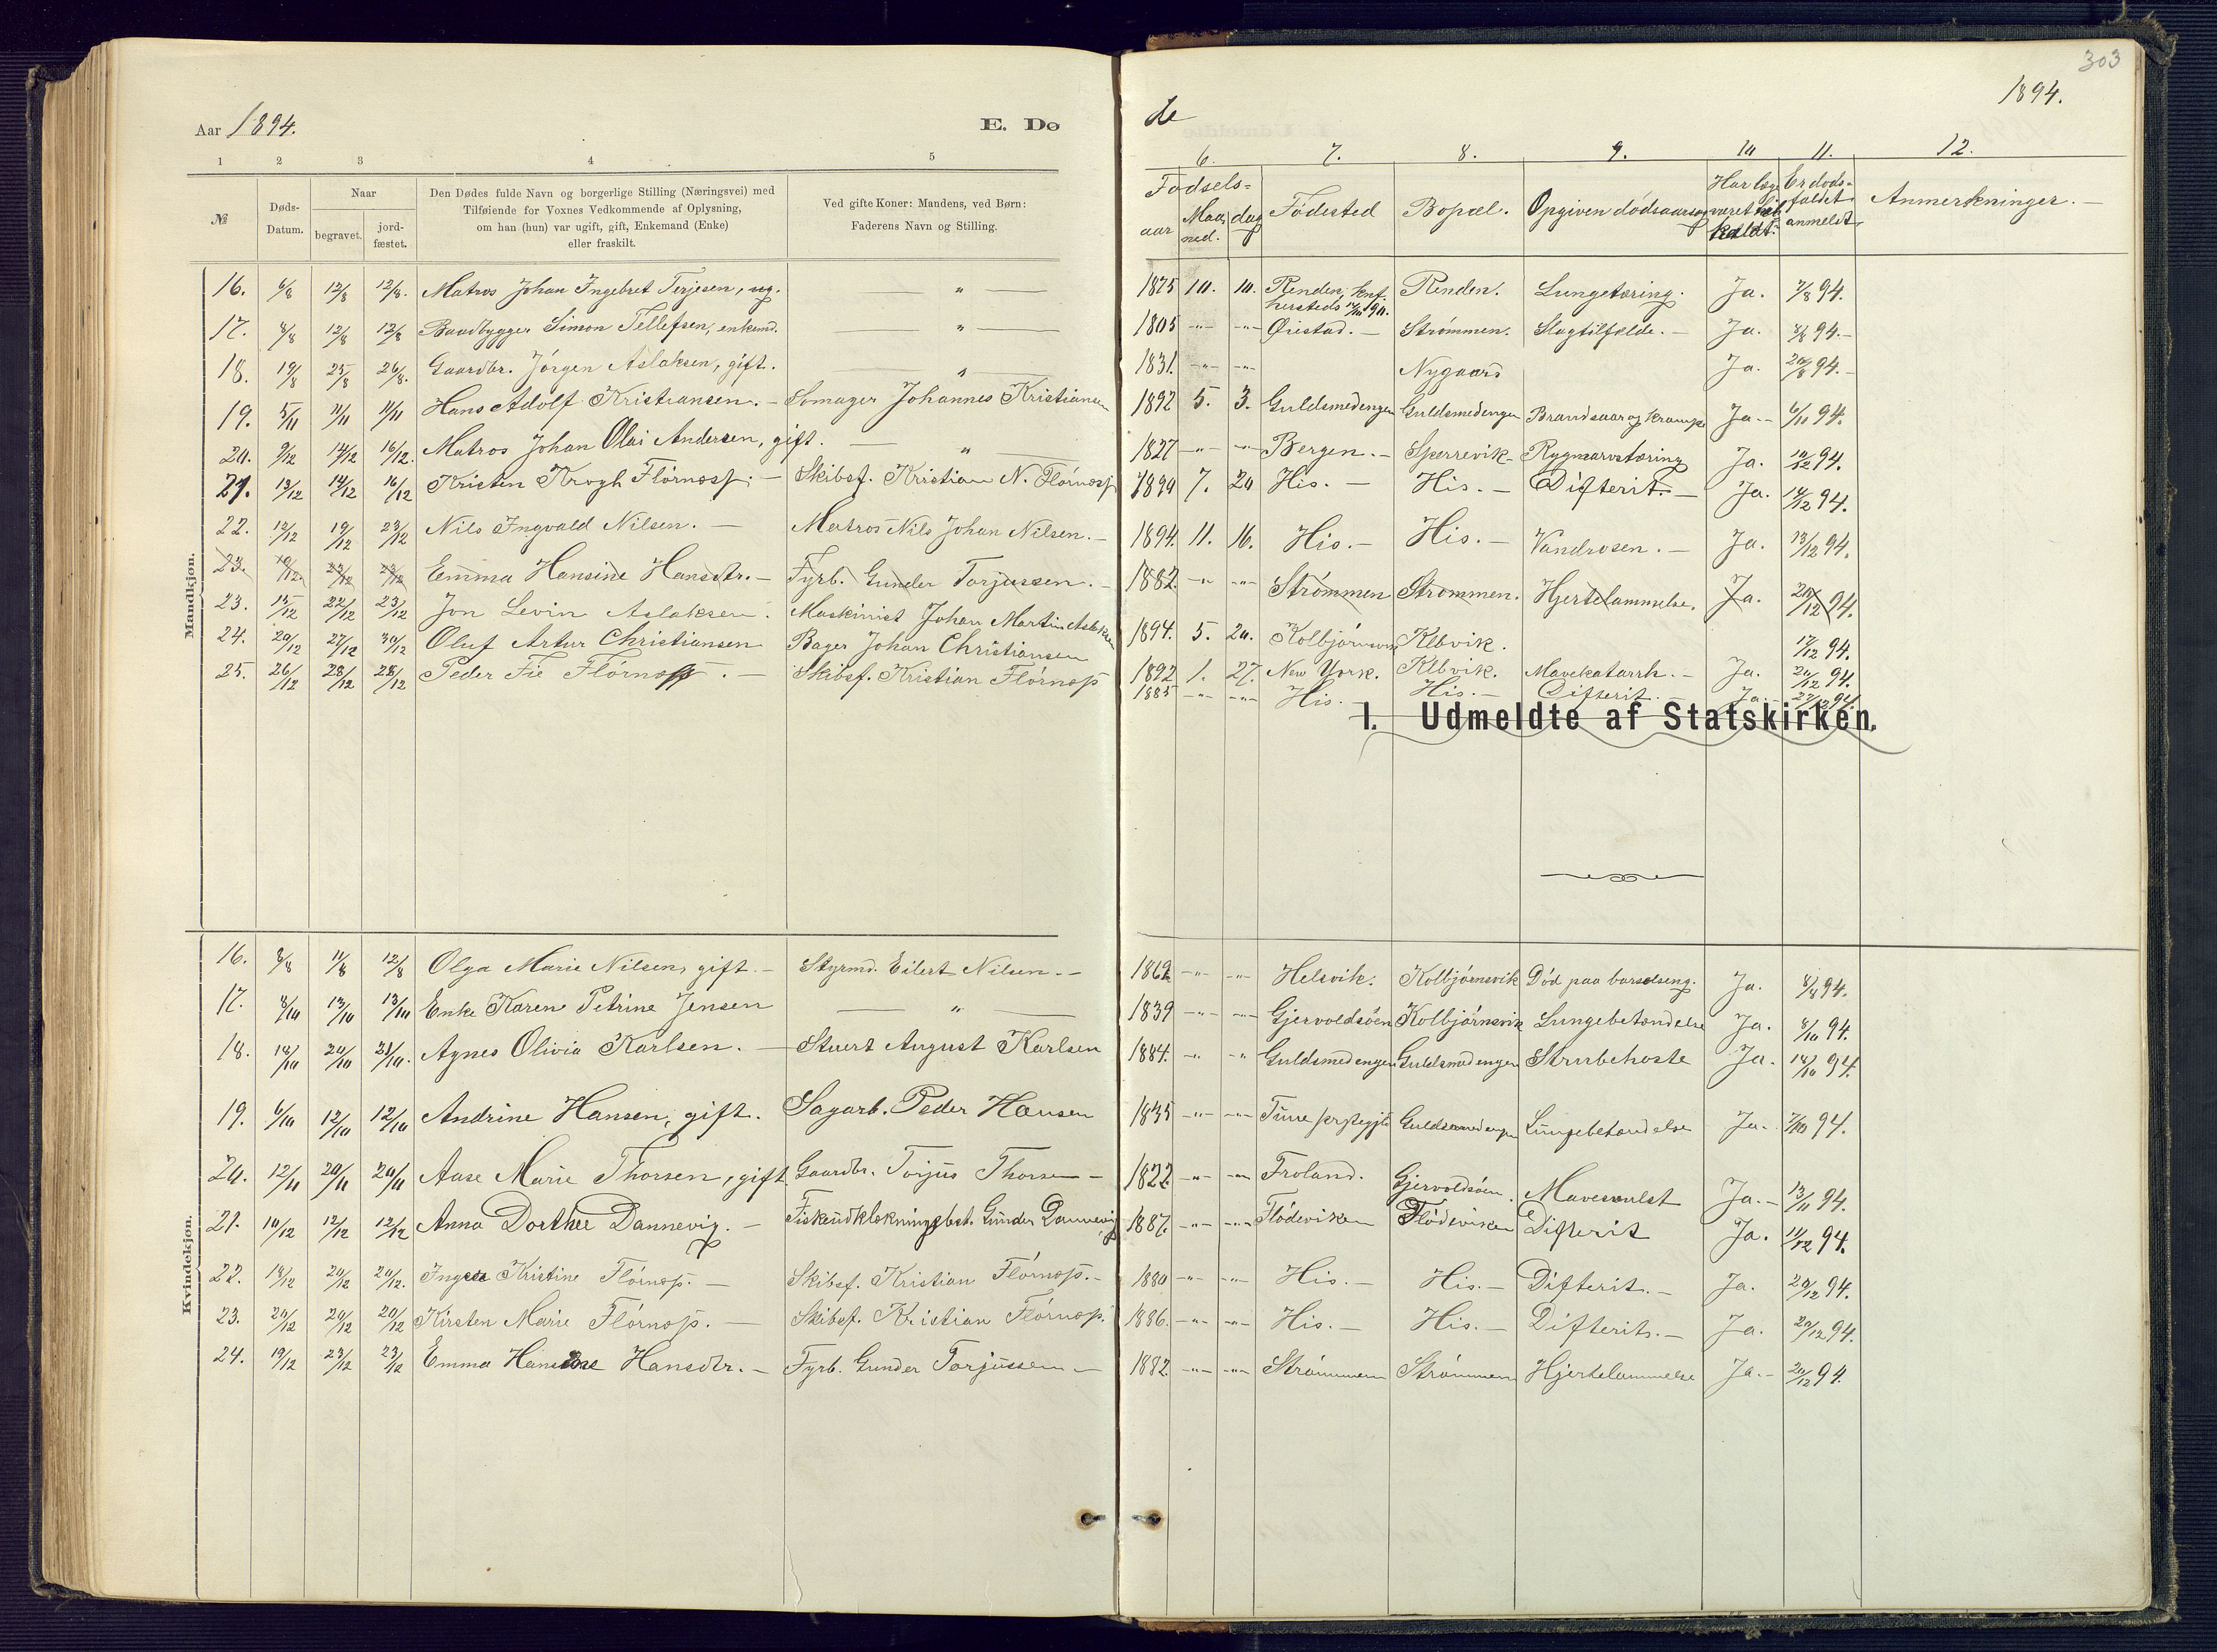 303
Aar 1894. E. Dø de 1894.
1 2 3 4 5 6. 7. 8. 9. 10 11. 12.
№ Døds-Datum. Naar begravet. jord-fæstet. Den Dødes fulde Navn og borgerlige Stilling (Næringsvei) med
Tilføiende for Voxnes Vedkommende af Oplysning,
om han (hun) var ugift, gift, Enkemand (Enke)
eller fraskilt.
Ved gifte Koner: Mandens, ved Børn:
Faderens Navn og Stilling.
Fødsels- aar Maaned. dag Fødested Bopæl. Opgiven dødsaarsag Har læge været Er dødsfaldet anmeldt Anmerkninger.
Mandkjøn.
16. 6/8 12/8 12/8. Matros Johan Ingebret Terjesen, ug. " — 1875 10. 10. Renden, Renden. Lungetæring. Ja. 7/8 94.
17. 8/8 12/8 12/8 Baadbygger Simon Tellefsen, enkemd. " — 1805 -"- -"- Øiestad. — Strømmen. Slagtilfælde. — Ja. 8/8 94.-
18. 19/8 25/8 26/8. Gaardbr. Jørgen Aslaksen, gift. " — 1831. -"- -"- Nygaard Ja. 20/8 94.-
19. 5/11 11/11 11/11 Hans Adolf Kristiansen. - Sømager Johannes Kristiansen 1892 5. 3. Guldsmedengen Guldsmedengen Brandsaar og Krampe Ja.- 6/11 94.
20. 9/12 14/12 16/12. Matros Johan Olai Andersen, gift. — " 1827 -"- -"- Bergen. - Sperrevik- Rygmarvstæring Ja. 10/12 94.
21. 13/12 14/12 16/12 Kristen Krogh Flørnæss. - Skibsf. Kristian N. Flørnæss 1890 7. 20 His. — His. - Difterit. — Ja. 14/12 94.
22. 12/12 19/12 23/12 Nils Ingvald Nilsen. — Matros Nils Johan Nilsen. - 1894. 11. 16. His. - His. - Vandrosen. - Ja. 13/12 94.
23. 19/12. 23/12 23/12 Emma Hansine Hansdtr. - Fyrb. Gunder Torjussen. - 1882. -"- -"- Strømmen Strømmen. Hjertelammelse. Ja. 20/12 94.
23. 15/12 22/12 23/12 Jon Levin Aslaksen. Maskinist Johan Martin Aslaksen 1894. 5. 20. Kolbjørnsvik Klbvik. 17/12 94.
24. 20/12 27/12 30/12 Oluf Artur Christiansen Bager Johan Christiansen 1892 1. 27. New York. Klbvik. Mavekatarrh. - Ja. 21/12 94.
25. 26/12 28/12 28/12 Peder Fie Flørnæss. — Skibsf. Kristian Flørnæss 1885 -"- -"- His. His. - Difterit. Ja. 27/12 94.
I. Udmeldte af Statskirken.
Kvindekjøn.
16. 8/8 11/8 12/8 Olga Marie Nilsen, gift. - Styrmd. Eilert Nilsen. - 1862 -"- -"- Helsvik. Kolbjørnsvik Død paa barselseng. Ja. 8/8 94.
17. 8/10 13/10 13/10 Enke Karen Petrine Jensen — " — 1839 -"- -"- Gjervoldsøen Kolbjørnsvik Lungebetændelse Ja. 8/10 94.
18. 18/10 20/10 21/10. Agnes Olivia Karlsen. — Stuert August Karlsen 1884. -"- -"- Guldsmedengen Guldsmedengen Strubehoste Ja. 18/10 94.
19. 6/10 12/10 12/10 Andrine Hansen, gift. Sagarb. Peder Hansen 1835 -"- -"- Guldsmedengen Lungebetændelse Ja. 7/10 94.
20. 12/11 20/11 20/11 Aase Marie Thorsen, gift Gaardbr. Torjus Thorsen - 1822 -"- -"- Froland. Gjervoldsøen. Mavesvulst Ja. - 13/11 94.
21. 10/12 12/12 12/12 Anna Dorthee Dannevig. - Fiskeudklækningsbest. Gunder Dannevig 1887. -"- -"- Flødeviken Flødeviken Difterit Ja. 11/12 94.
22. 18/12 20/12 20/12. Kristine Flørnæss. — Skibsf. Kristian Flørnæss. - 1880 -"- -"- His. - His. - Difterit. - Ja. 20/12 94.
23. 20/12 20/12 20/12 Kirsten Marie Flørnæss. — Skibsf. Kristian Flørnæss. 1886. -"- -"- His. - His. - Difterit. - Ja. 20/12 94.
24. 19/12 23/12 23/12 Emma Hansine Hansdtr. - Fyrb. Gunder Torjussen - 1882. -"- -"- Strømmen Strømmen Hjertelammelse Ja. - 20/12 94.